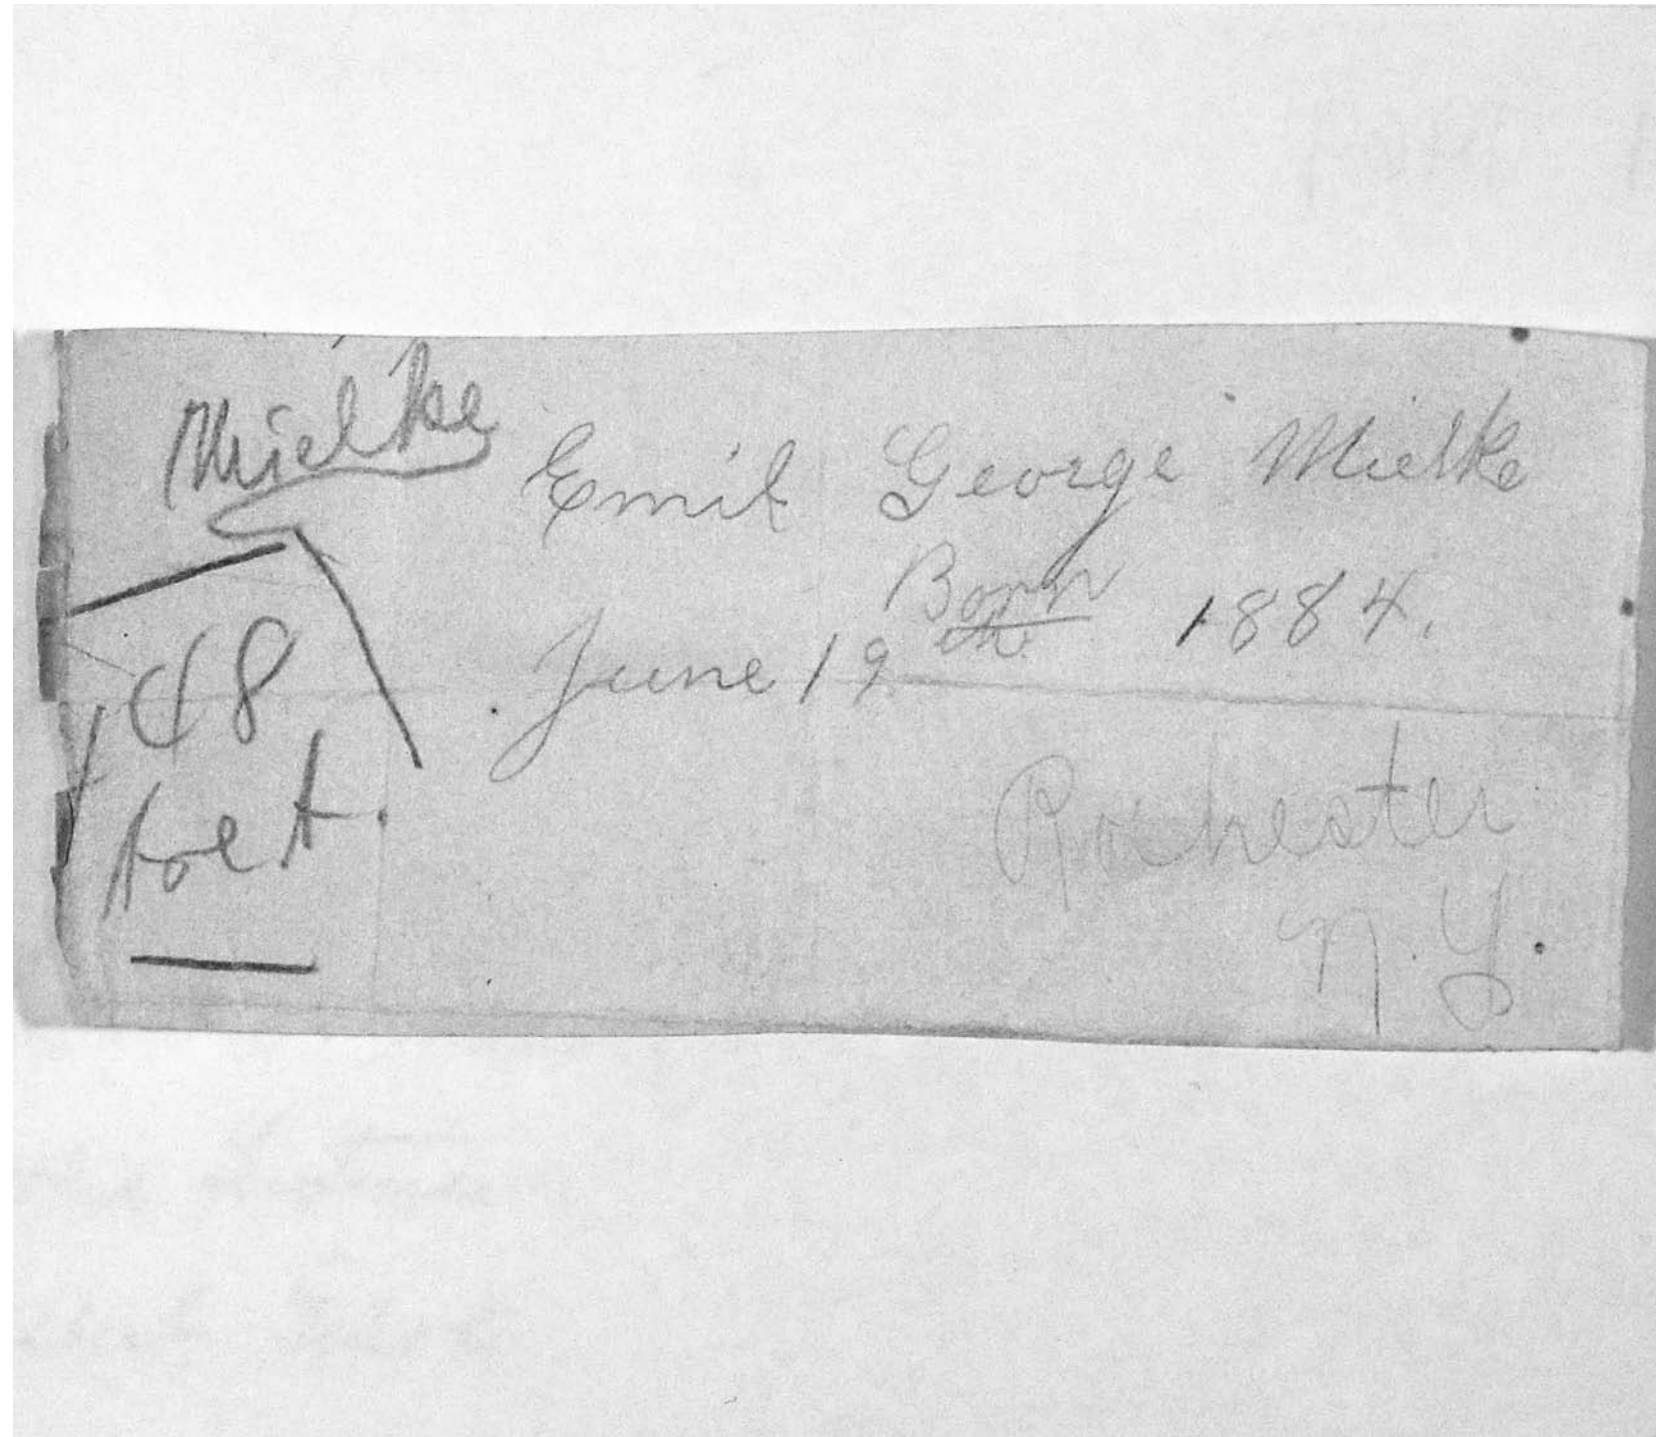 Mielke
Emil George Mielke
Born
June 19th 1884.
48
Rochester
N.Y.